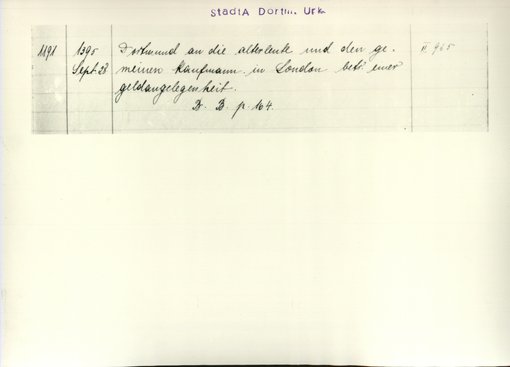 StadtA Dortm. Urk.
1191 1395 Dortmund an die alterleute und den ge- II 965
Sept. 28 meinen Kaufmann in London betr. einer
geldangelegenheit.
B. B. p. 164.